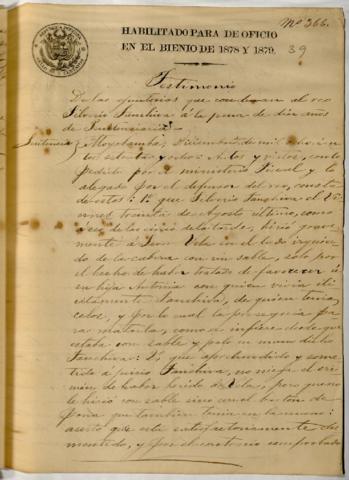 Nº 366.
HABILITADO PARA DE OFICIO
EN EL BIENIO DE 1878 Y 1879.
39
Testimonio
De las ejecutorias que condenan al reo
Silverio Sanchiva á la pena de diez años
de Penitenciaria
Sentencia Moyobamba, Diciembre de mil ocho cien
tos setenta y ocho: Autos y vistos, con lo
pedido por el ministerio Fiscal y lo
alegado por el defensor del reo, consta
de estos: 1º que Silverio Sanchiva el Vi
ernes treinta de Agosto último, como
á eso de las cinco de la tarde, hirió grave
mente á Juan Vela en el lado izquier
do de la cabeza con un sable, solo por
el hecho de haber tratado de favorecer á
su hija Antonia con quien vivia ili
citamente Sanchiva, de quien tenia
celos, y por lo cual la perseguia pa
ra matarla, como se infiere desde que
estaba con sable y palo en mano dicho
Sanchiva: 2º que aprehendido y some
tido á juicio Sanchiva, no niega el cri
men de haber herido á Vela, pero que no
le hirió con sable sino con el baston de
que tambien tenia en la mano:
aserto que está satisfactoriamente des
mentido, y por el contrario comprobado